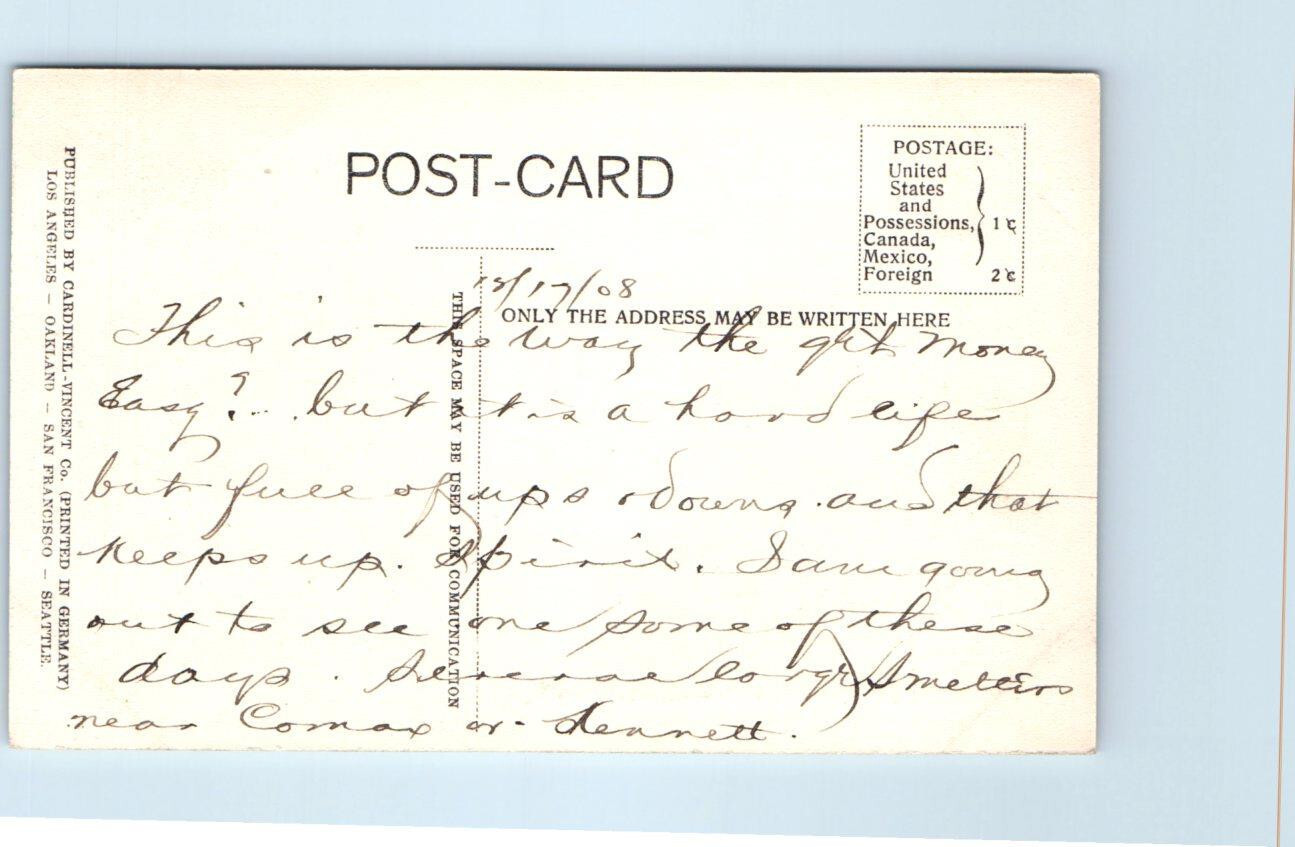 POST-CARD
POSTAGE:
United
States
and
Possessions, 1¢
Canada,
Mexico,
Foreign 2¢
12/17/08
ONLY THE ADDRESS MAY BE WRITTEN HERE
THIS SPACE MAY BE USED FOR COMMUNICATION
PUBLISHED BY CARDINELL-VINCENT Co. (PRINTED IN GERMANY)
LOS ANGELES – OAKLAND – SAN FRANCISCO – SEATTLE.
This is the way the get money
Easy? but it is a hard life
but full of ups & downs. and that
keeps up. Spirit. I am going
out to see one some of these
days. Several large Smelters
near Comax or Kennett.